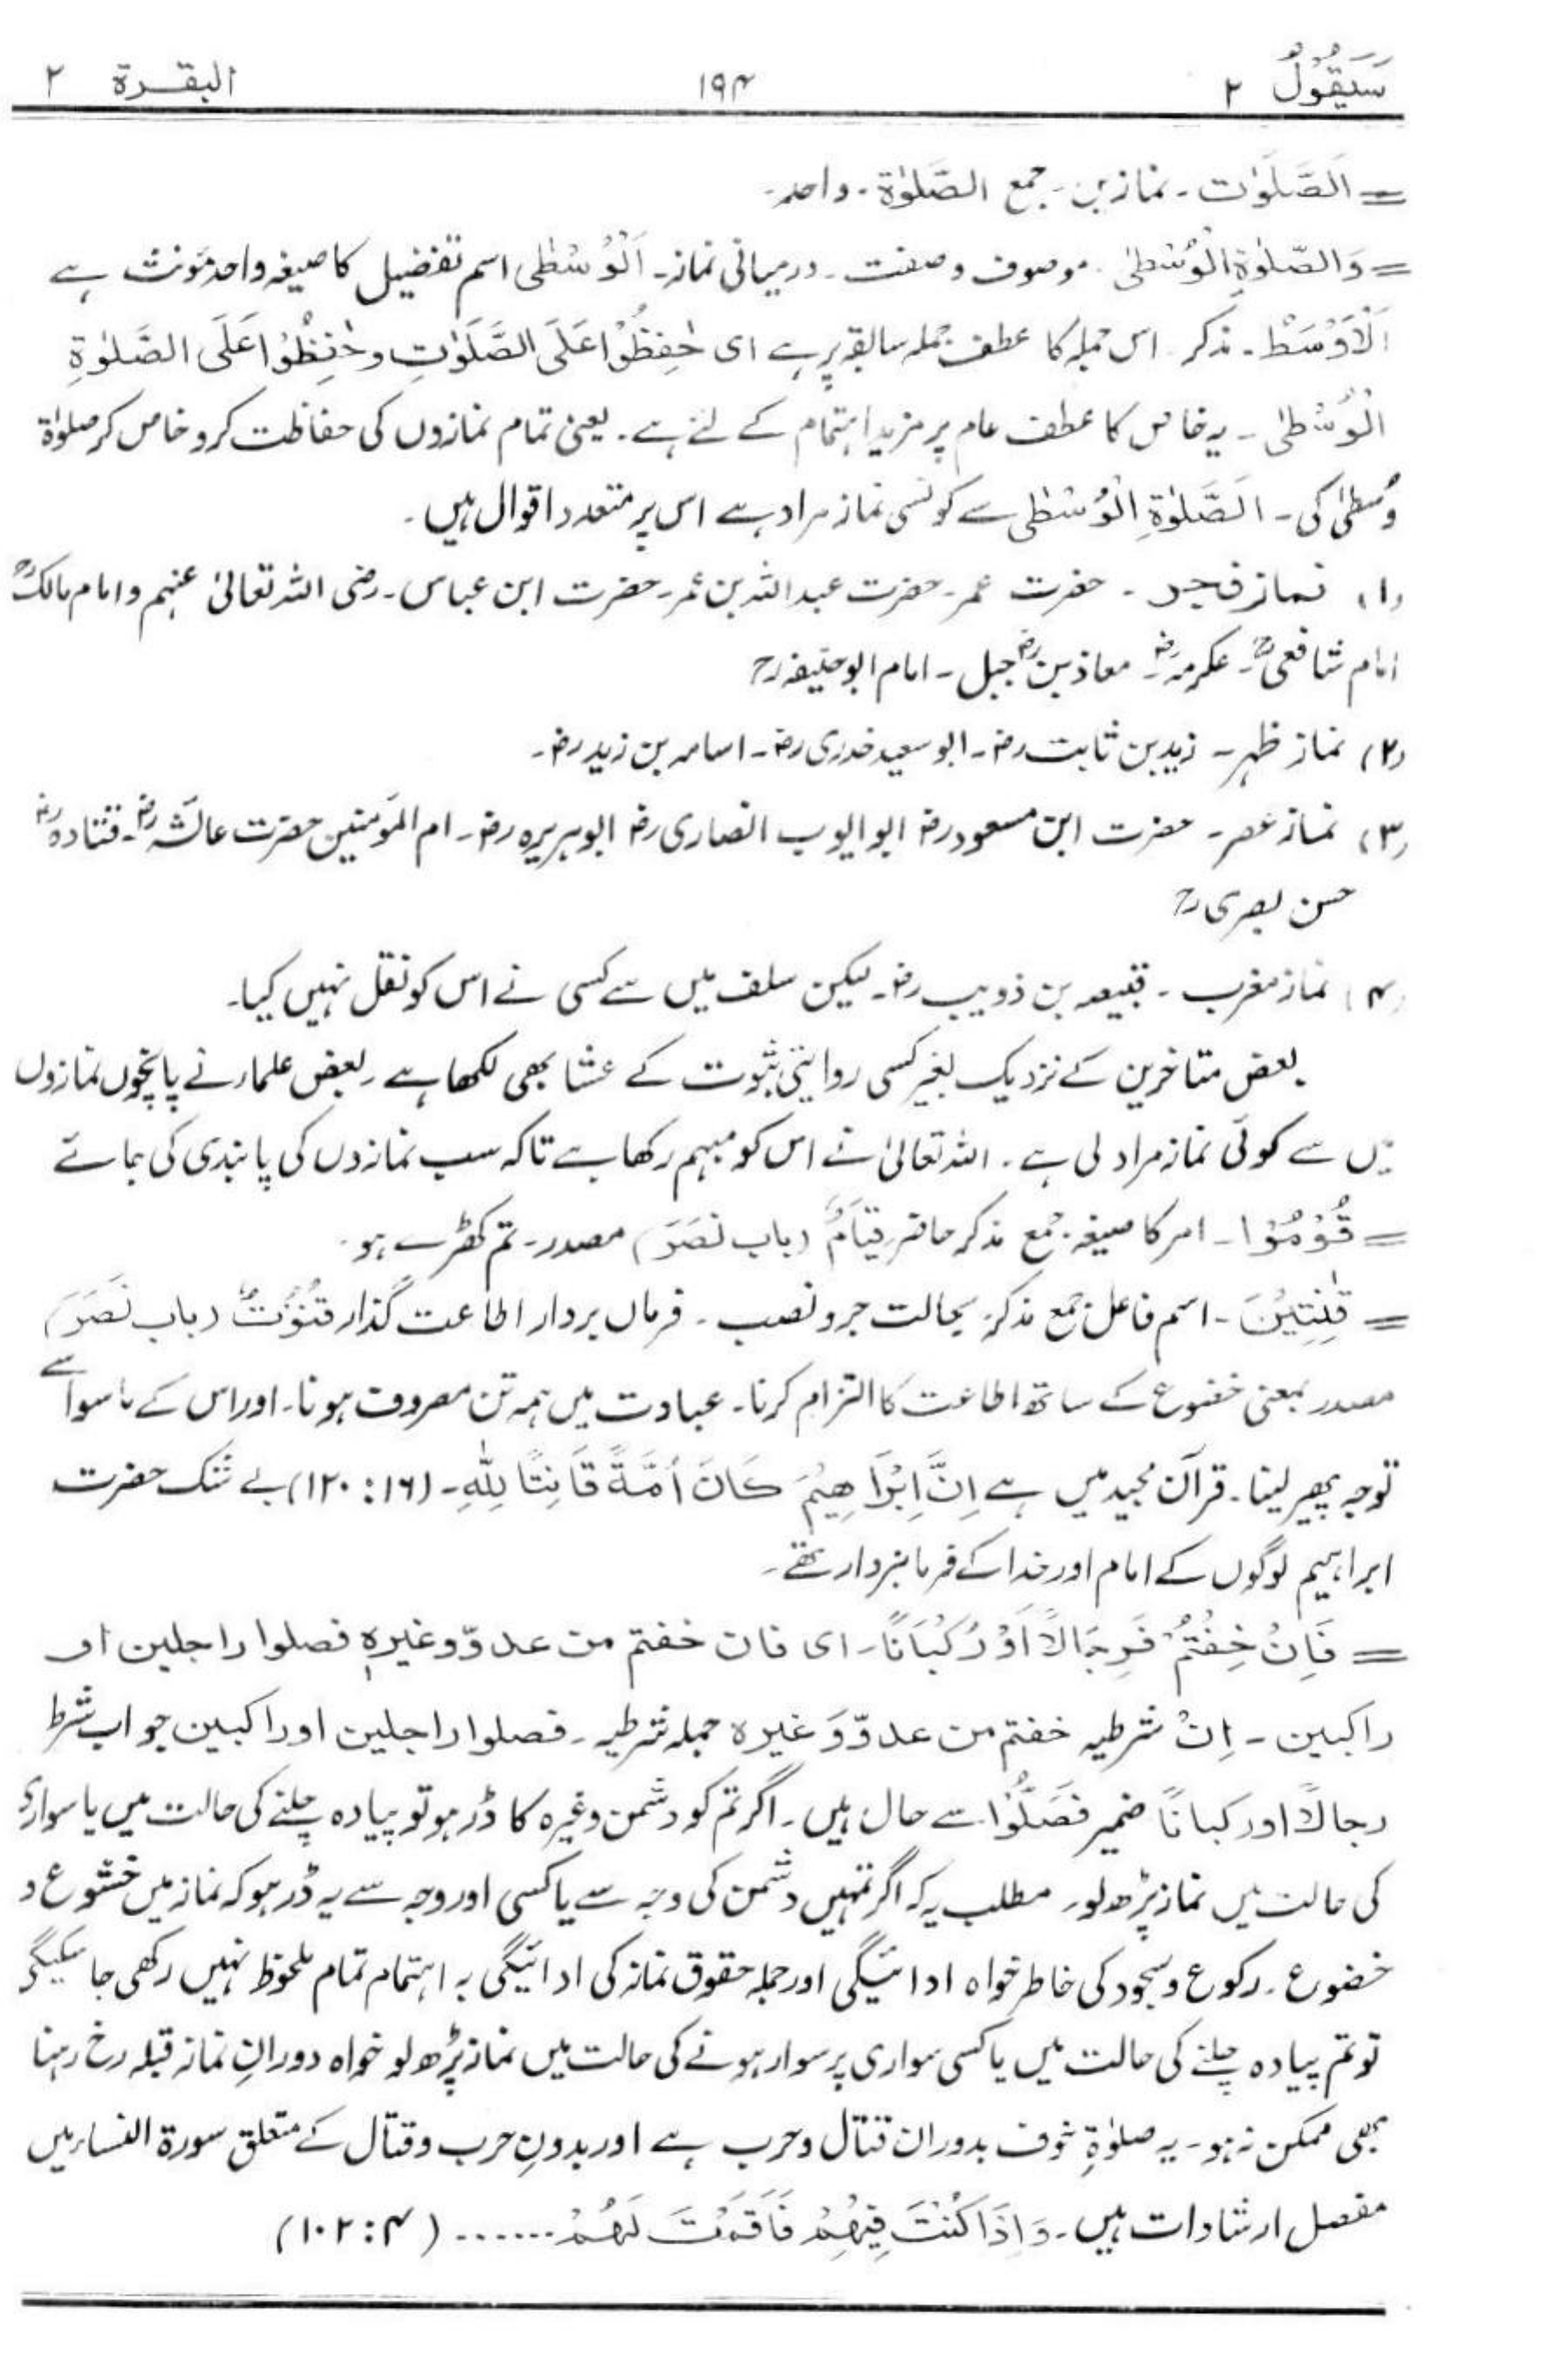 سَيَقُوْلُ ۲ ۱۹۴ البقرة ۲
= اَلصَّلَوٰت ۔ نمازیں ۔ جمع الصَّلوٰة ۔ واحد ۔
= وَالصَّلوٰةِ الْوُسْطٰى ۔ موصوف و صفت ۔ درمیانی نماز ۔ اَلْوُسْطٰى اسم تفضیل کا صیغہ واحد مونث ہے
اَلْاَوْسَطْ ۔ مذکر ۔ اس جملہ کا عطف جملہ سابقہ پر ہے ای حٰفِظُوْا عَلَى الصَّلَوٰتِ وحٰفِظُوْا عَلَى الصَّلٰوةِ
الْوُسْطٰى ۔ یہ خاص کا عطف عام پر مزید اہتمام کے لئے ہے ۔ یعنی تمام نمازوں کی حفاظت کرو خاص کر صلوٰۃ
وُسطیٰ کی ۔ اَلصَّلٰوةِ الْوُسْطٰى سے کونسی نماز مراد ہے اس پر متعدد اقوال ہیں ۔
(۱) نماز فجر ۔ حضرت عمر ۔ حضرت عبداللہ بن عمر ۔ حضرت ابن عباس ۔ رضی اللہ تعالیٰ عنہم و امام مالکؒ
امام شافعیؒ ۔ عکرمہ رضؓ ۔ معاذ بن رضؓ جبل ۔ امام ابو حنیفہ رح
(۲) نماز ظہر ۔ زید بن ثابت رضؓ ۔ ابو سعید خدری رضؓ ۔ اسامہ بن زید رضؓ ۔
(۳) نماز عصر ۔ حضرت ابن مسعود رضؓ ابو ایوب انصاری رضؓ ابو ہریرہ رضؓ ۔ ام المؤمنین حضرت عائشہ رضؓ ۔ قتادہ رضؓ
حسن بصری رح
(۴) نماز مغرب ۔ قبیصہ بن ذویب رضؓ ۔ لیکن سلف میں سے کسی نے اس کو نقل نہیں کیا ۔
بعض متاخرین کے نزدیک بغیر کسی روایتی ثبوت کے عشا بھی لکھا ہے ۔ بعض علماء نے پانچوں نمازوں
یں سے کوئی نماز مراد لی ہے ۔ اللہ تعالیٰ نے اس کو مبہم رکھا ہے تاکہ سب نمازوں کی پابندی کی جائے
= قُوْمُوْا ۔ امر کا صیغہ جمع مذکر حاضر قِيَامٌ (باب نَصَرَ) مصدر ۔ تم کھڑے ہو ۔
= قٰنِتِيْنَ ۔ اسم فاعل جمع مذکر بحالت جر و نصب ۔ فرماں بردار اطاعت گذار قُنُوْتٌ (باب نَصَرَ)
مصدر بمعنی خضوع کے ساتھ اطاعت کا التزام کرنا ۔ عبادت میں ہمہ تن مصروف ہونا ۔ اور اس کے ماسوا سے
توجہ پھیر لینا ۔ قرآن مجید میں ہے اِنَّ اِبْرَاهِيْمَ كَانَ اُمَّةً قَانِتًا لِلّٰهِ ۔ (۱۶ : ۱۲۰) بے شک حضرت
ابراہیم لوگوں کے امام اور خدا کے فرمانبردار تھے ۔
= فَاِنْ خِفْتُمْ فَرِجَالًا اَوْ رُكْبَانًا ۔ ای فان خفتم من عدوّ وغیرہٖ فصلوا راجلین او
راکبین ۔ اِنْ شرطیہ خفتم من عدوّ وَ غیرہ جملہ شرطیہ ۔ فصلوا راجلین او راکبین جواب شرط
رجالًا اور رکبانًا ضمیر فَصَلُّوْا سے حال ہیں ۔ اگر تم کو دشمن وغیرہ کا ڈر ہو تو پیادہ چلنے کی حالت میں یا سواری
کی حالت میں نماز پڑھ لو ۔ مطلب یہ کہ اگر تمہیں دشمن کی وجہ سے یا کسی اور وجہ سے یہ ڈر ہو کہ نماز میں خشوع و
خضوع ۔ رکوع و سجود کی خاطر خواہ ادائیگی اور جملہ حقوق نماز کی ادائیگی بہ اہتمام تمام ملحوظ نہیں رکھی جا سکیگی
تو تم پیادہ چلنے کی حالت میں یا کسی سواری پر سوار ہونے کی حالت میں نماز پڑھ لو خواہ دورانِ نماز قبلہ رخ رہنا
بھی ممکن نہ ہو ۔ یہ صلوٰۃِ خوف بدوران قتال و حرب ہے اور بدونِ حرب و قتال کے متعلق سورۃ النساء میں
مفصل ارشادات ہیں ۔ وَاِذَا كُنْتَ فِيْهِمْ فَاَقَمْتَ لَهُمْ ....... (۴ : ۱۰۲)